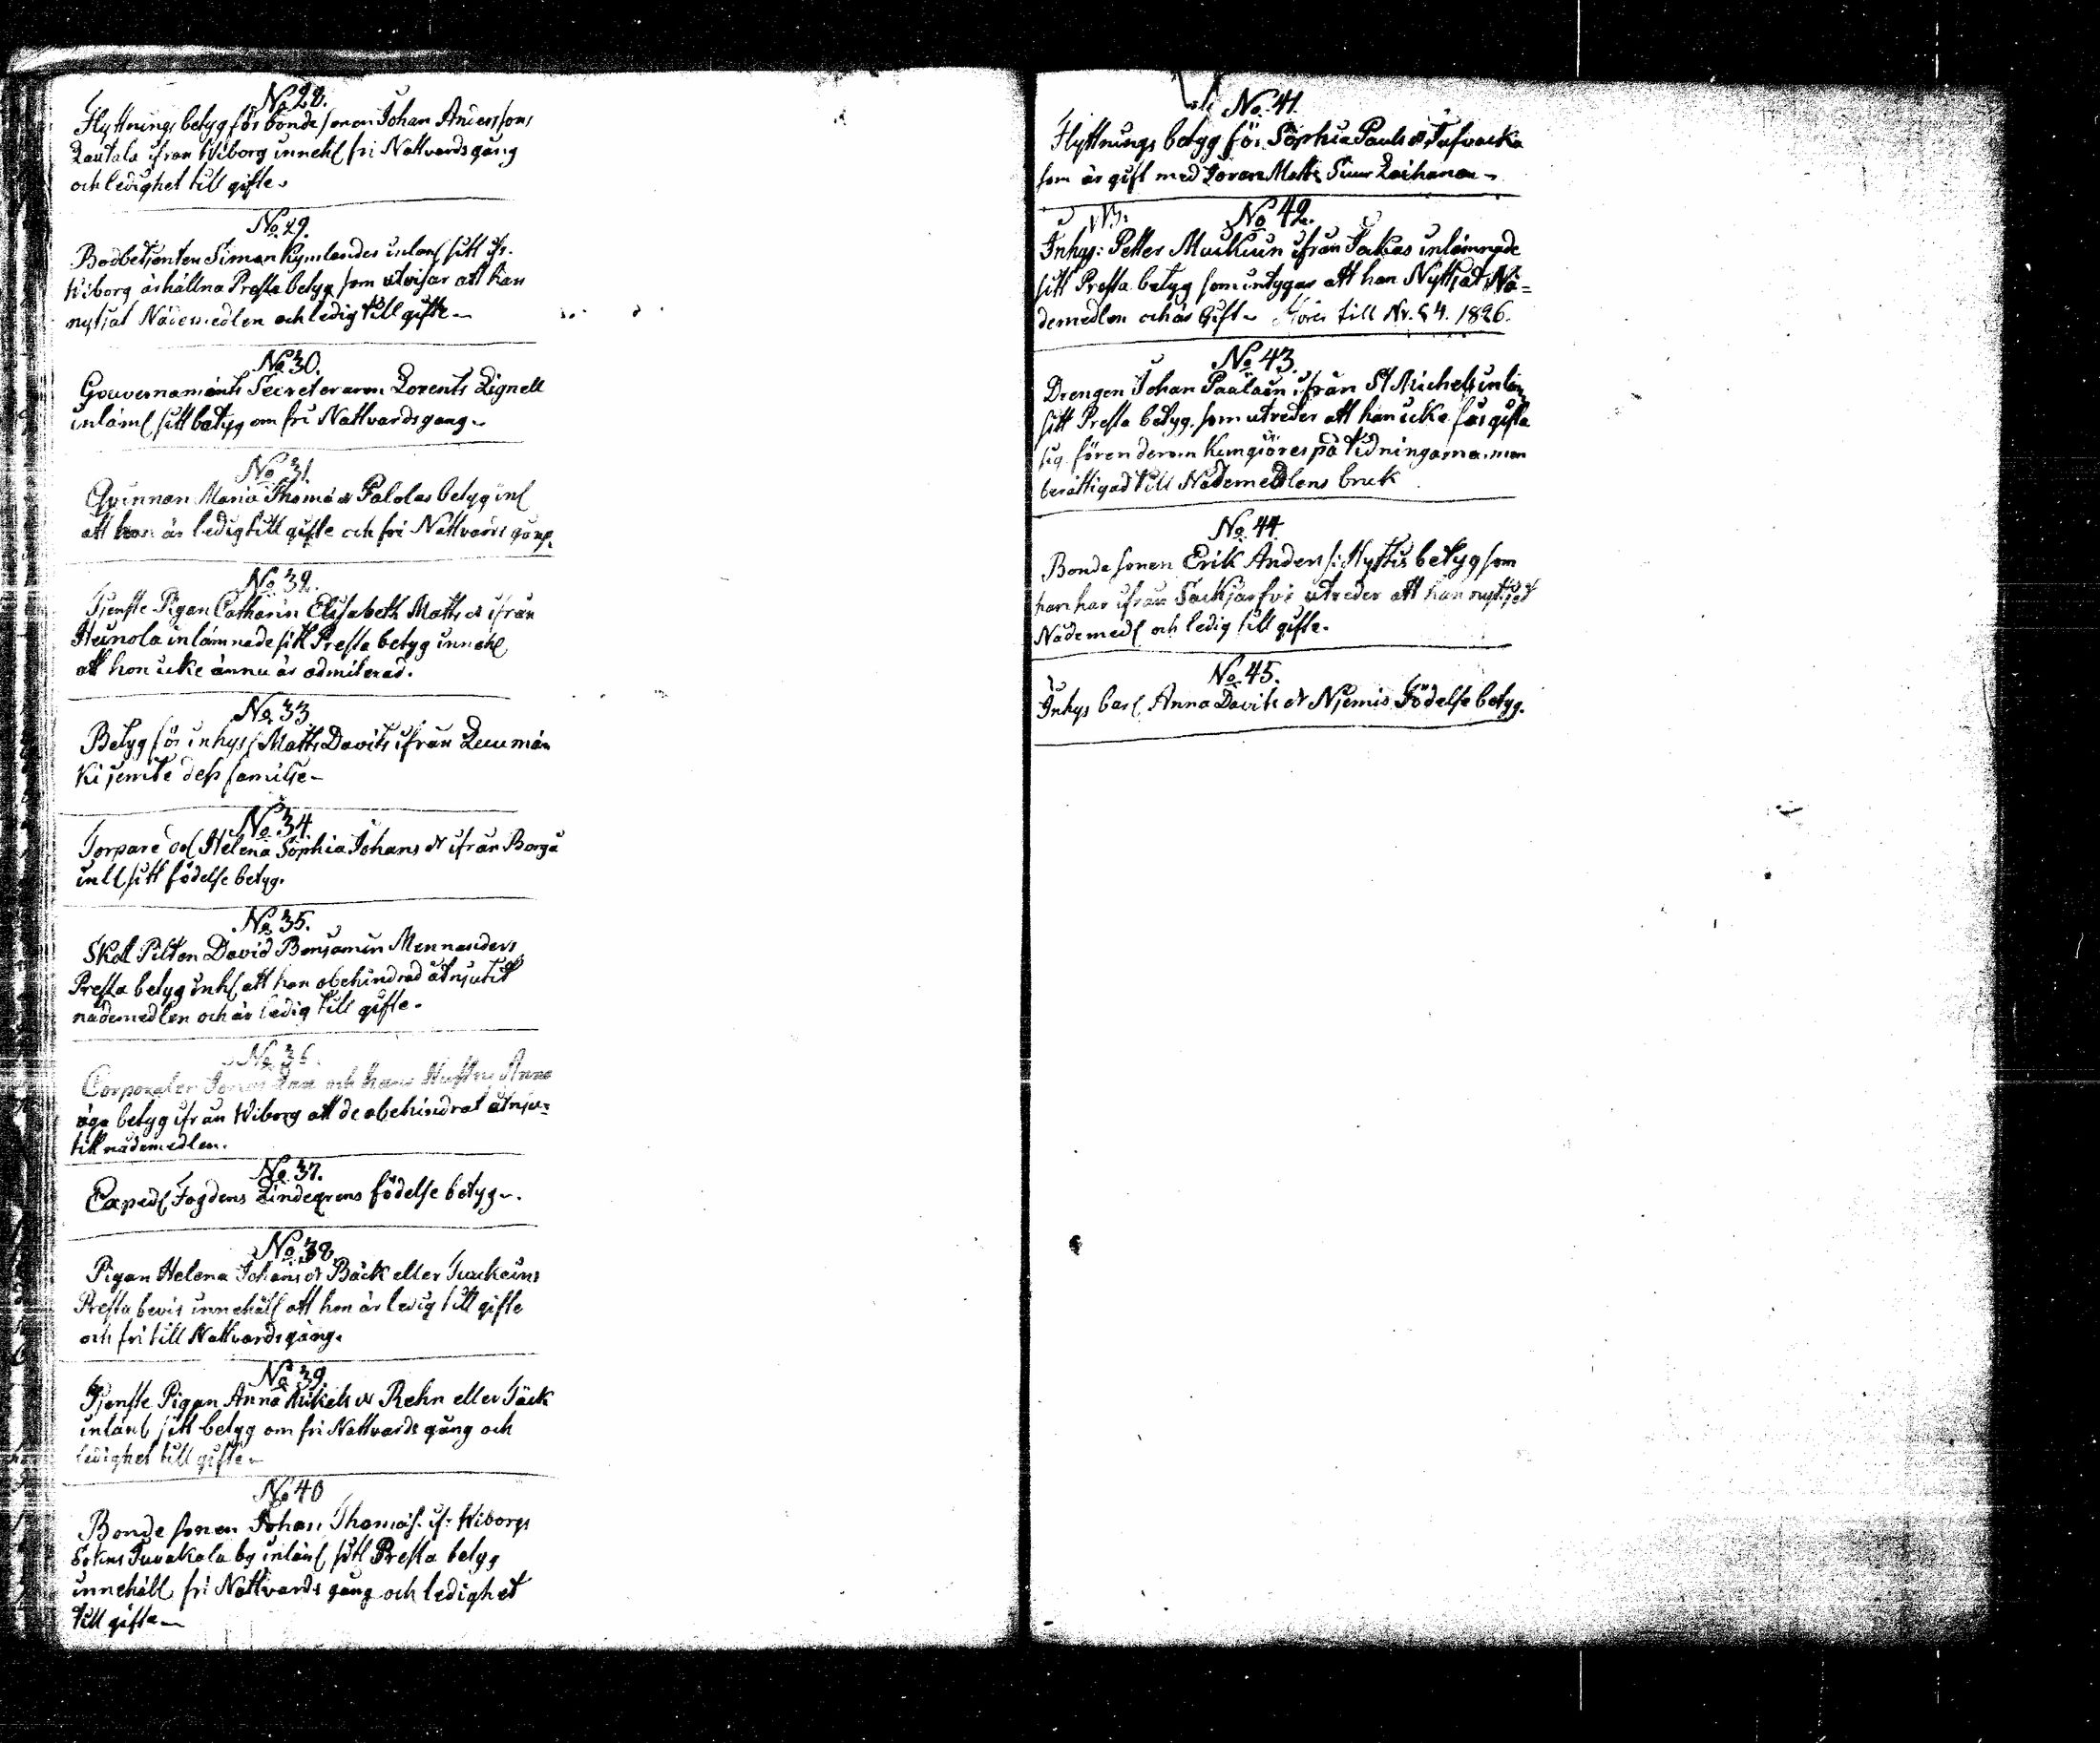 No 28.
Flyttnings betyg för bonde sonen Johan Anderssons
Lautala ifrån Wiborg inneh fri Nattvards gång
och ledighet till gifte.
No 29.
Bodbetjenten Simon Kymlander inlem sitt ifr.
Wiborg århållna Presta betyg som utvisar att han
nytjat Nådemedlen och ledig till gifte
No 30.
Gouvernamänts Secreteraren Lorents Lignell
inläm sitt betyg om fri Nattvardsgang
No 31.
Qvinnan Maria Thomæ dr Palolas betyg inl
att hon är ledig till gifte och fri Nattvards gång.
No 32.
Tjenste Pigan Catharin Elisabeth Matts dr ifrån
Heinola inlämnade sitt Presta betyg inneh
att hon icke ännu är admiterad.
No 33
Betyg för inhys Matts Davits ifrån Luumä
ki jemte dess familje
No 34.
Torpare do Helena Sophia Johans dr ifrån Borgå
inll sitt födelse betyg.
No 35.
Skol Pilten David Benjamin Mennanders
Presta betyg inh att han obehindrad åtnjutit
nådemedlen och är ledig till gifte.
No 36.
Corporalen Jonas och hans Hustru Anna
äga betyg ifrån Wiborg att de obehindrat åtnju=
tit nådemedlen.
No 37.
Exped Fogdens Lindegrens födelse betyg.
No 38.
Pigan Helena Johans dr Bäck eller Tuckeins
Presta bevis innehåll att hon är ledig till gifte
och fri till Nattvardsgång.
No 39.
Tjenste Pigan Anna Mikels dr Rehn eller Täck
inlän sitt betyg om fri Nattvards gång och
ledighet till gifte
No 40
Bonde sonen Johan Thomas. if: Wiborgs
Sokns Juvakala by inlän sitt Presta betyg
innehåll fri Nattvards gång och ledighet
till gifte
No 41.
Flyttnings betyg för Sophia Pauls dr
som är gift med Göran Matts Suur Laihanen
NB. No 42.
Inhys: Petter Muckuin ifrån Jakas inlämnade
sitt Presta betyg som intygar att han Nyttjat Nå=
demedlen och är Gift Hörer till Nr. 54. 1826.
No 43.
Drengen Johan Paalain ifrån St Michels inläm
sitt Presta betyg. som utreder att han icke får gifta
sig förendärom kungiöres på Tidningarna. men
berättigad till Nådemedlens bruk
No 44.
Bonde sonen Erik Anders s: Hyttis betyg som
han har ifrån Säckjärfvi utreder att han nyttjat
Nådemed och ledig till gifte.
No 45.
Inhys bar Anna Davits dr Njemis Födelse betyg.